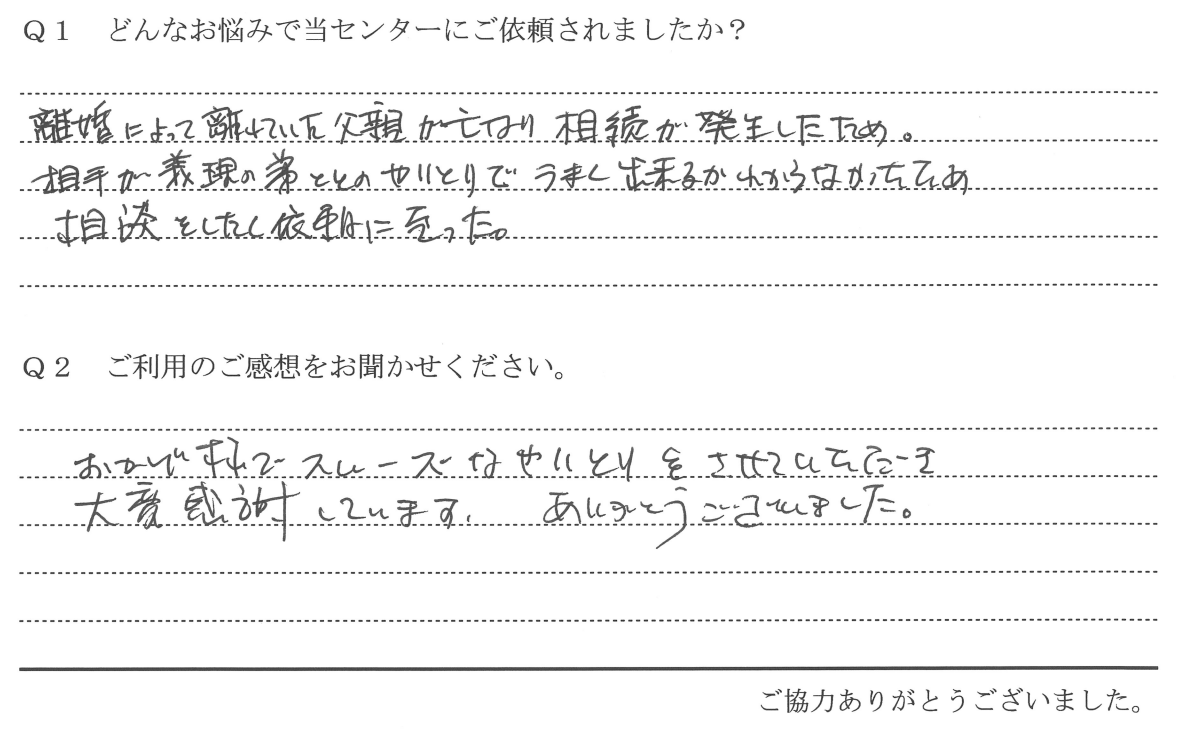 Q1 どんなお悩みで当センターにご依頼されましたか？
離婚によって離れていた父親が亡なり相続が発生したため。
相手が義理の弟ととのやりとりでうまく出来るかわからなかったため
相談をしたく依頼に至った。
Q2 ご利用のご感想をお聞かせください。
おかげ様でスムーズなやりとりをさせていただき
大変感謝しています。 ありがとうございました。
ご協力ありがとうございました。